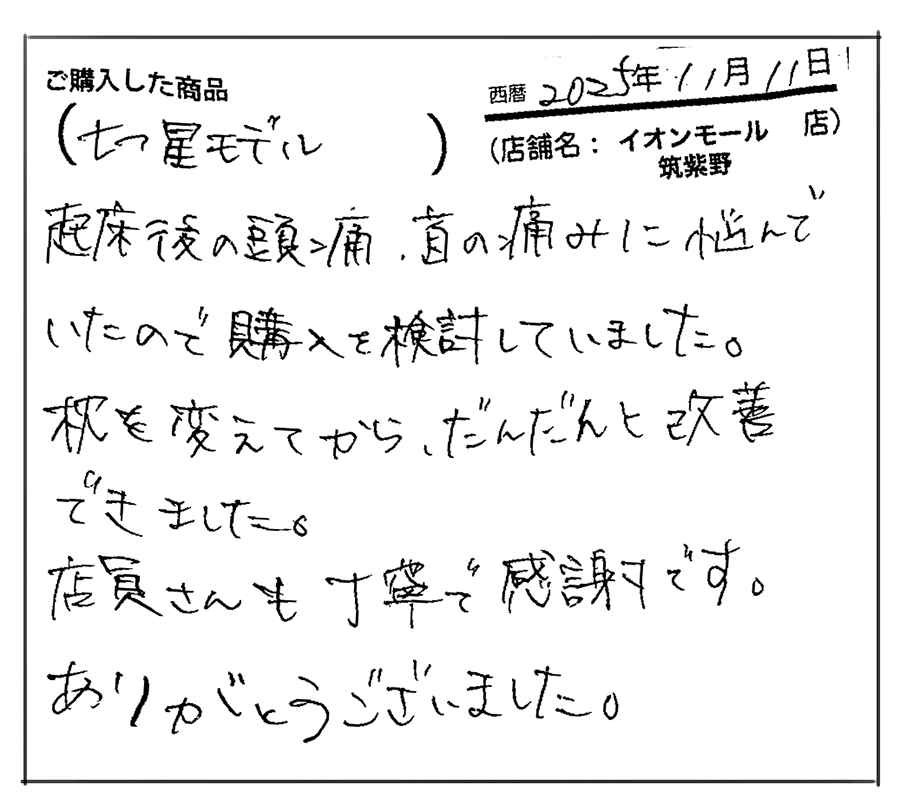 ご購入した商品
西暦 2025年11月11日
(七つ星モデル)
(店舗名：イオンモール 店)
筑紫野
起床後の頭痛、首の痛みに悩んで
いたので購入を検討していました。
枕を変えてから、だんだんと改善
できました。
店員さんも丁寧で感謝です。
ありがとうございました。